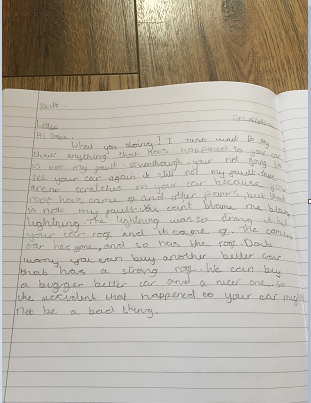 Hi
What you doing? I just want to say
that anything that has happened to your car
is not my fault. Eventhough, your not going to
see your car again it still not my fault. There
are scratches on your car because your
roof has came of and other parts, but that
is not my fault. You can't blame me blame
lightning. The lightning was so strong it hit
your car roof and it came of. The
car has gone, and so has the roof. Don't
worry you can buy another better car
that has a strong roof. We can buy
a bigger better car and a nicer one, so
the accident that happened to your car might
not be a bad thing.